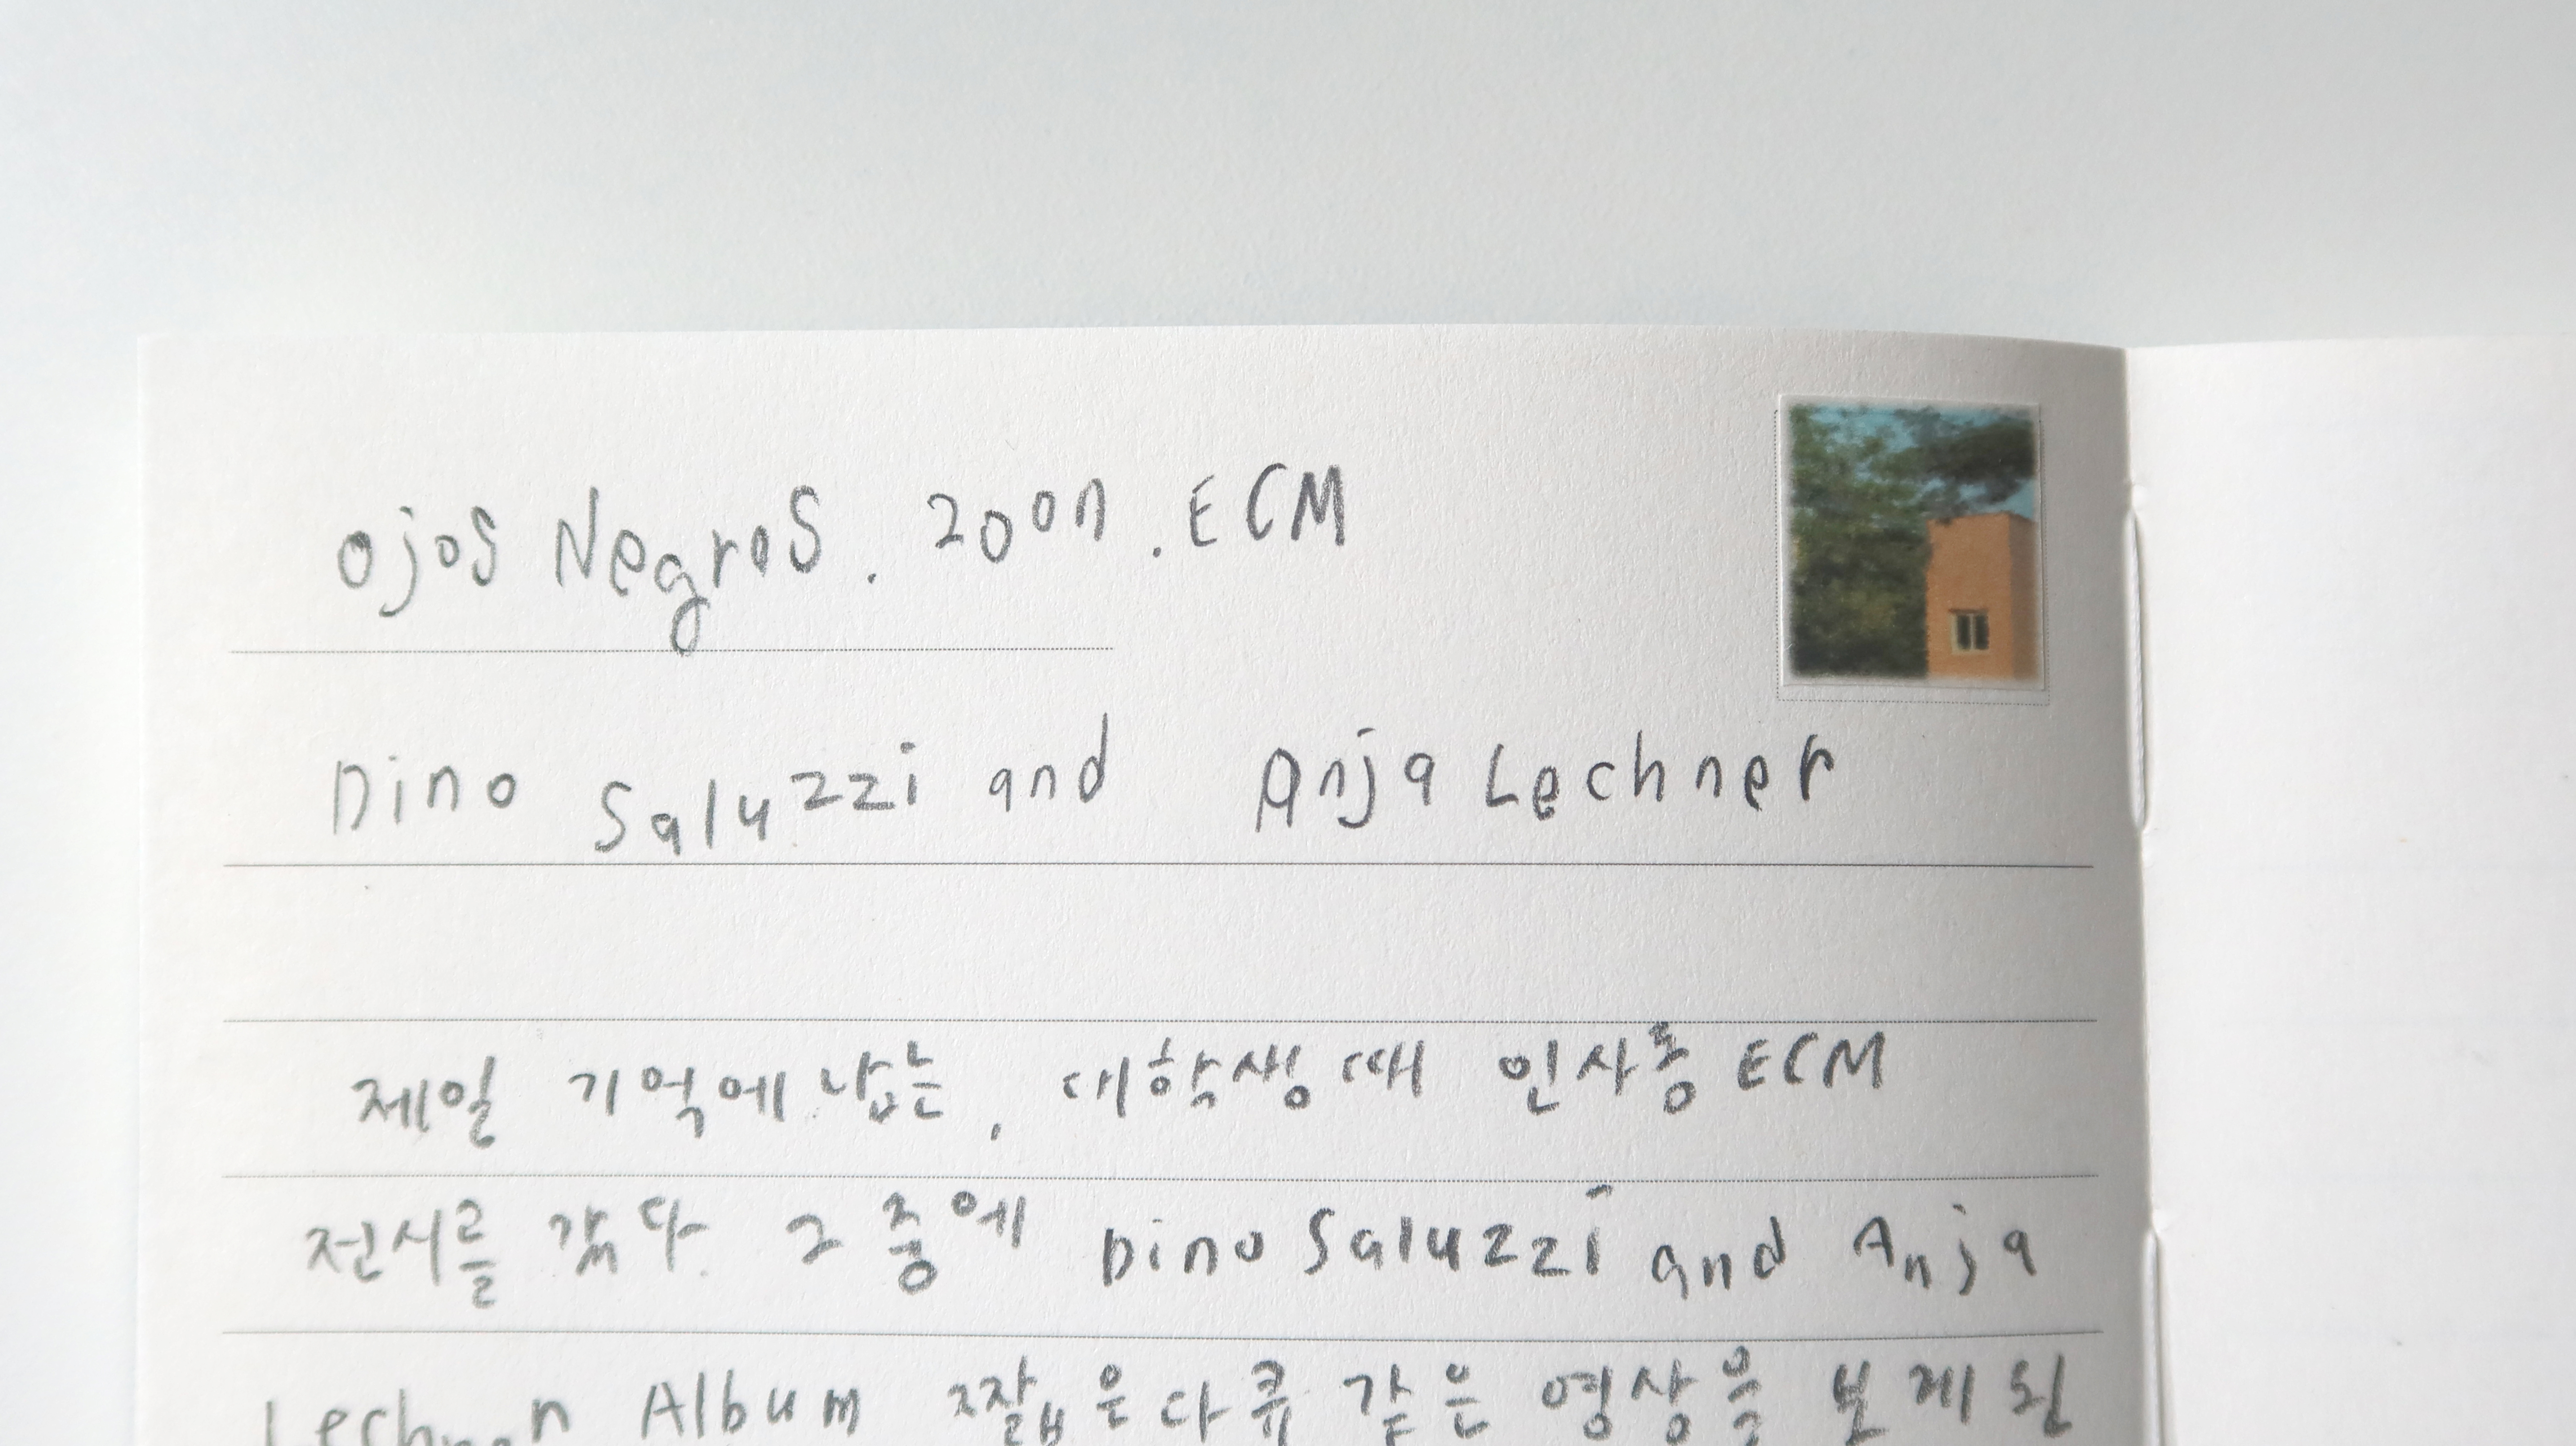 Ojos Negros. 2007. ECM
Dino Saluzzi and Anja Lechner
제일 기억에 남는, 대학생 때 인사동 ECM
전시를 갔다. 그 중에 Dino Saluzzi and Anja
Album 짧은 다큐 같은 영상을 보게 된